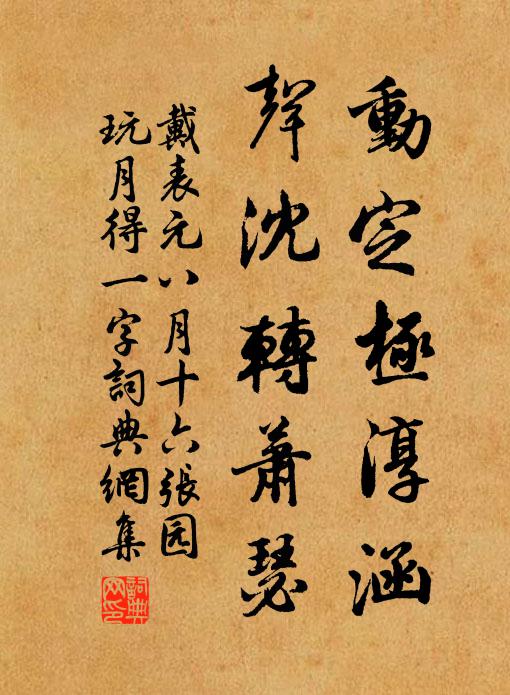 動定極淳涵
聲沈轉蕭瑟
戴表元八月十六張园
玩月得一字詞典網集
詞典网印